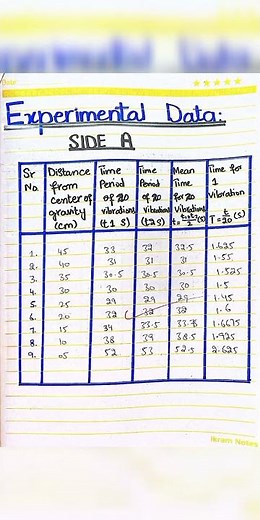 Date:
Experimental Data:
SIDE A
Sr No. | Distance from center of gravity (cm) | Time Period of 20 vibrations (t1 s) | Time Period of 20 vibrations (t2 s) | Mean Time for 20 vibrations t = t1+t2/2 (s) | Time for 1 vibration T = t/20 (s)
1. 45 33 32 32.5 1.625
2. 40 31 31 31 1.55
3. 35 30.5 30.5 30.5 1.525
4. 30 30 30 30 1.5
5. 25 29 29 29 1.45
6. 20 32 32 32 1.6
7. 15 34 33.5 33.75 1.6675
8. 10 38 39 38.5 1.925
9. 05 52 53 52.5 2.625
Ikram Notes